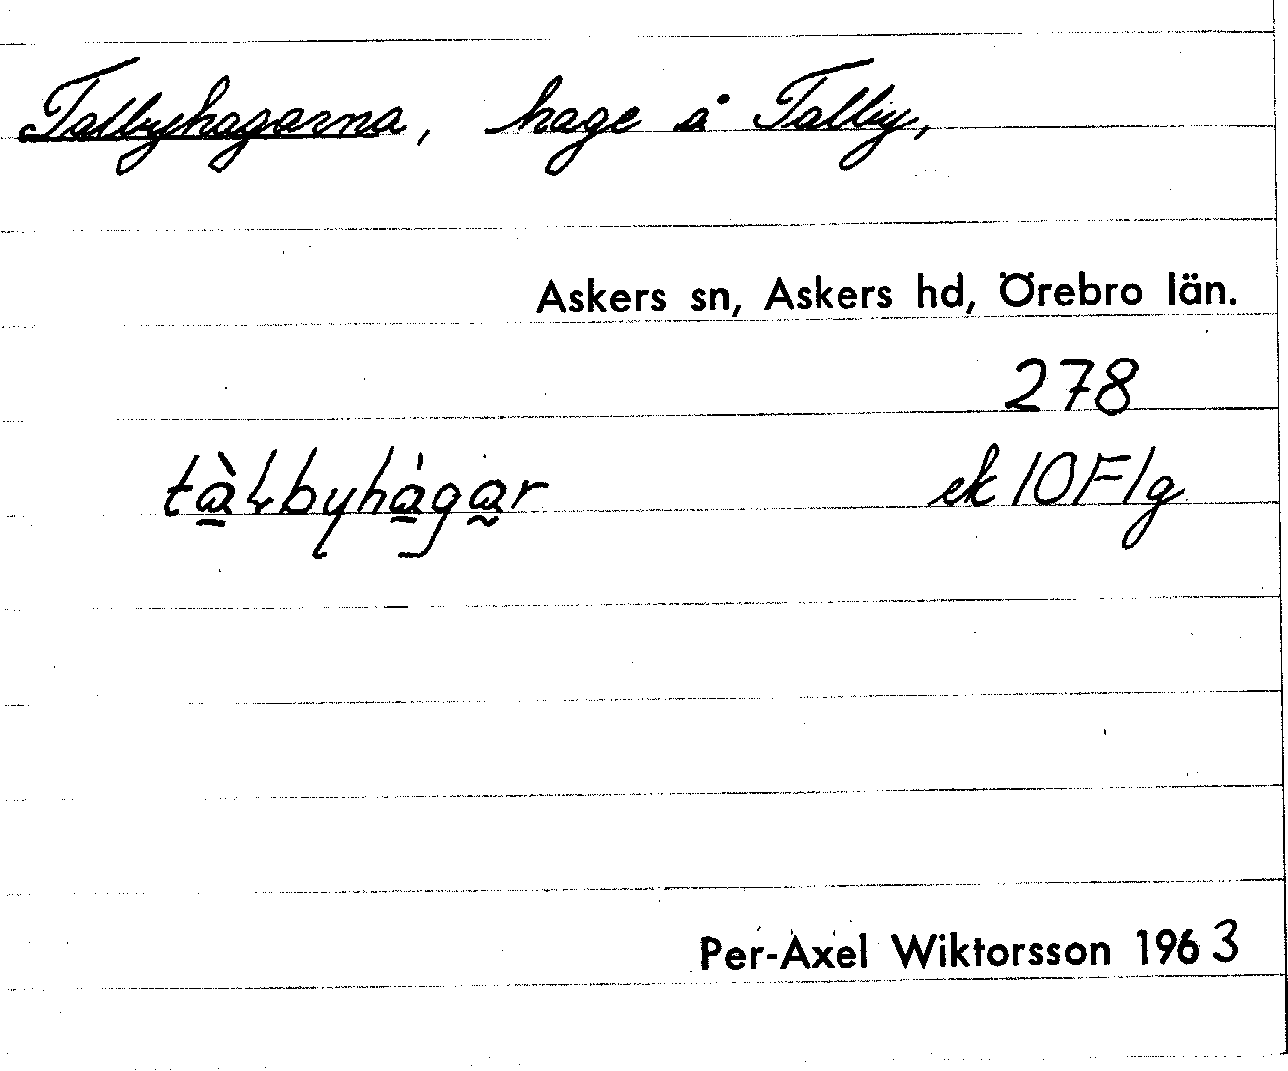 Talbyhagarna, hage å Talby,
Askers sn, Askers hd, Örebro län.
278
tàlbyhágar ek 10F1g
Per-Axel Wiktorsson 1963